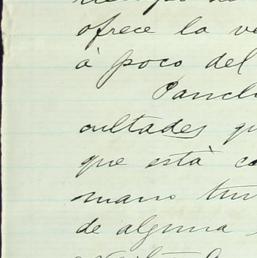 ofrece la ve
à poco del
Panch
cultades qu
que está co
mano tu
de alguna